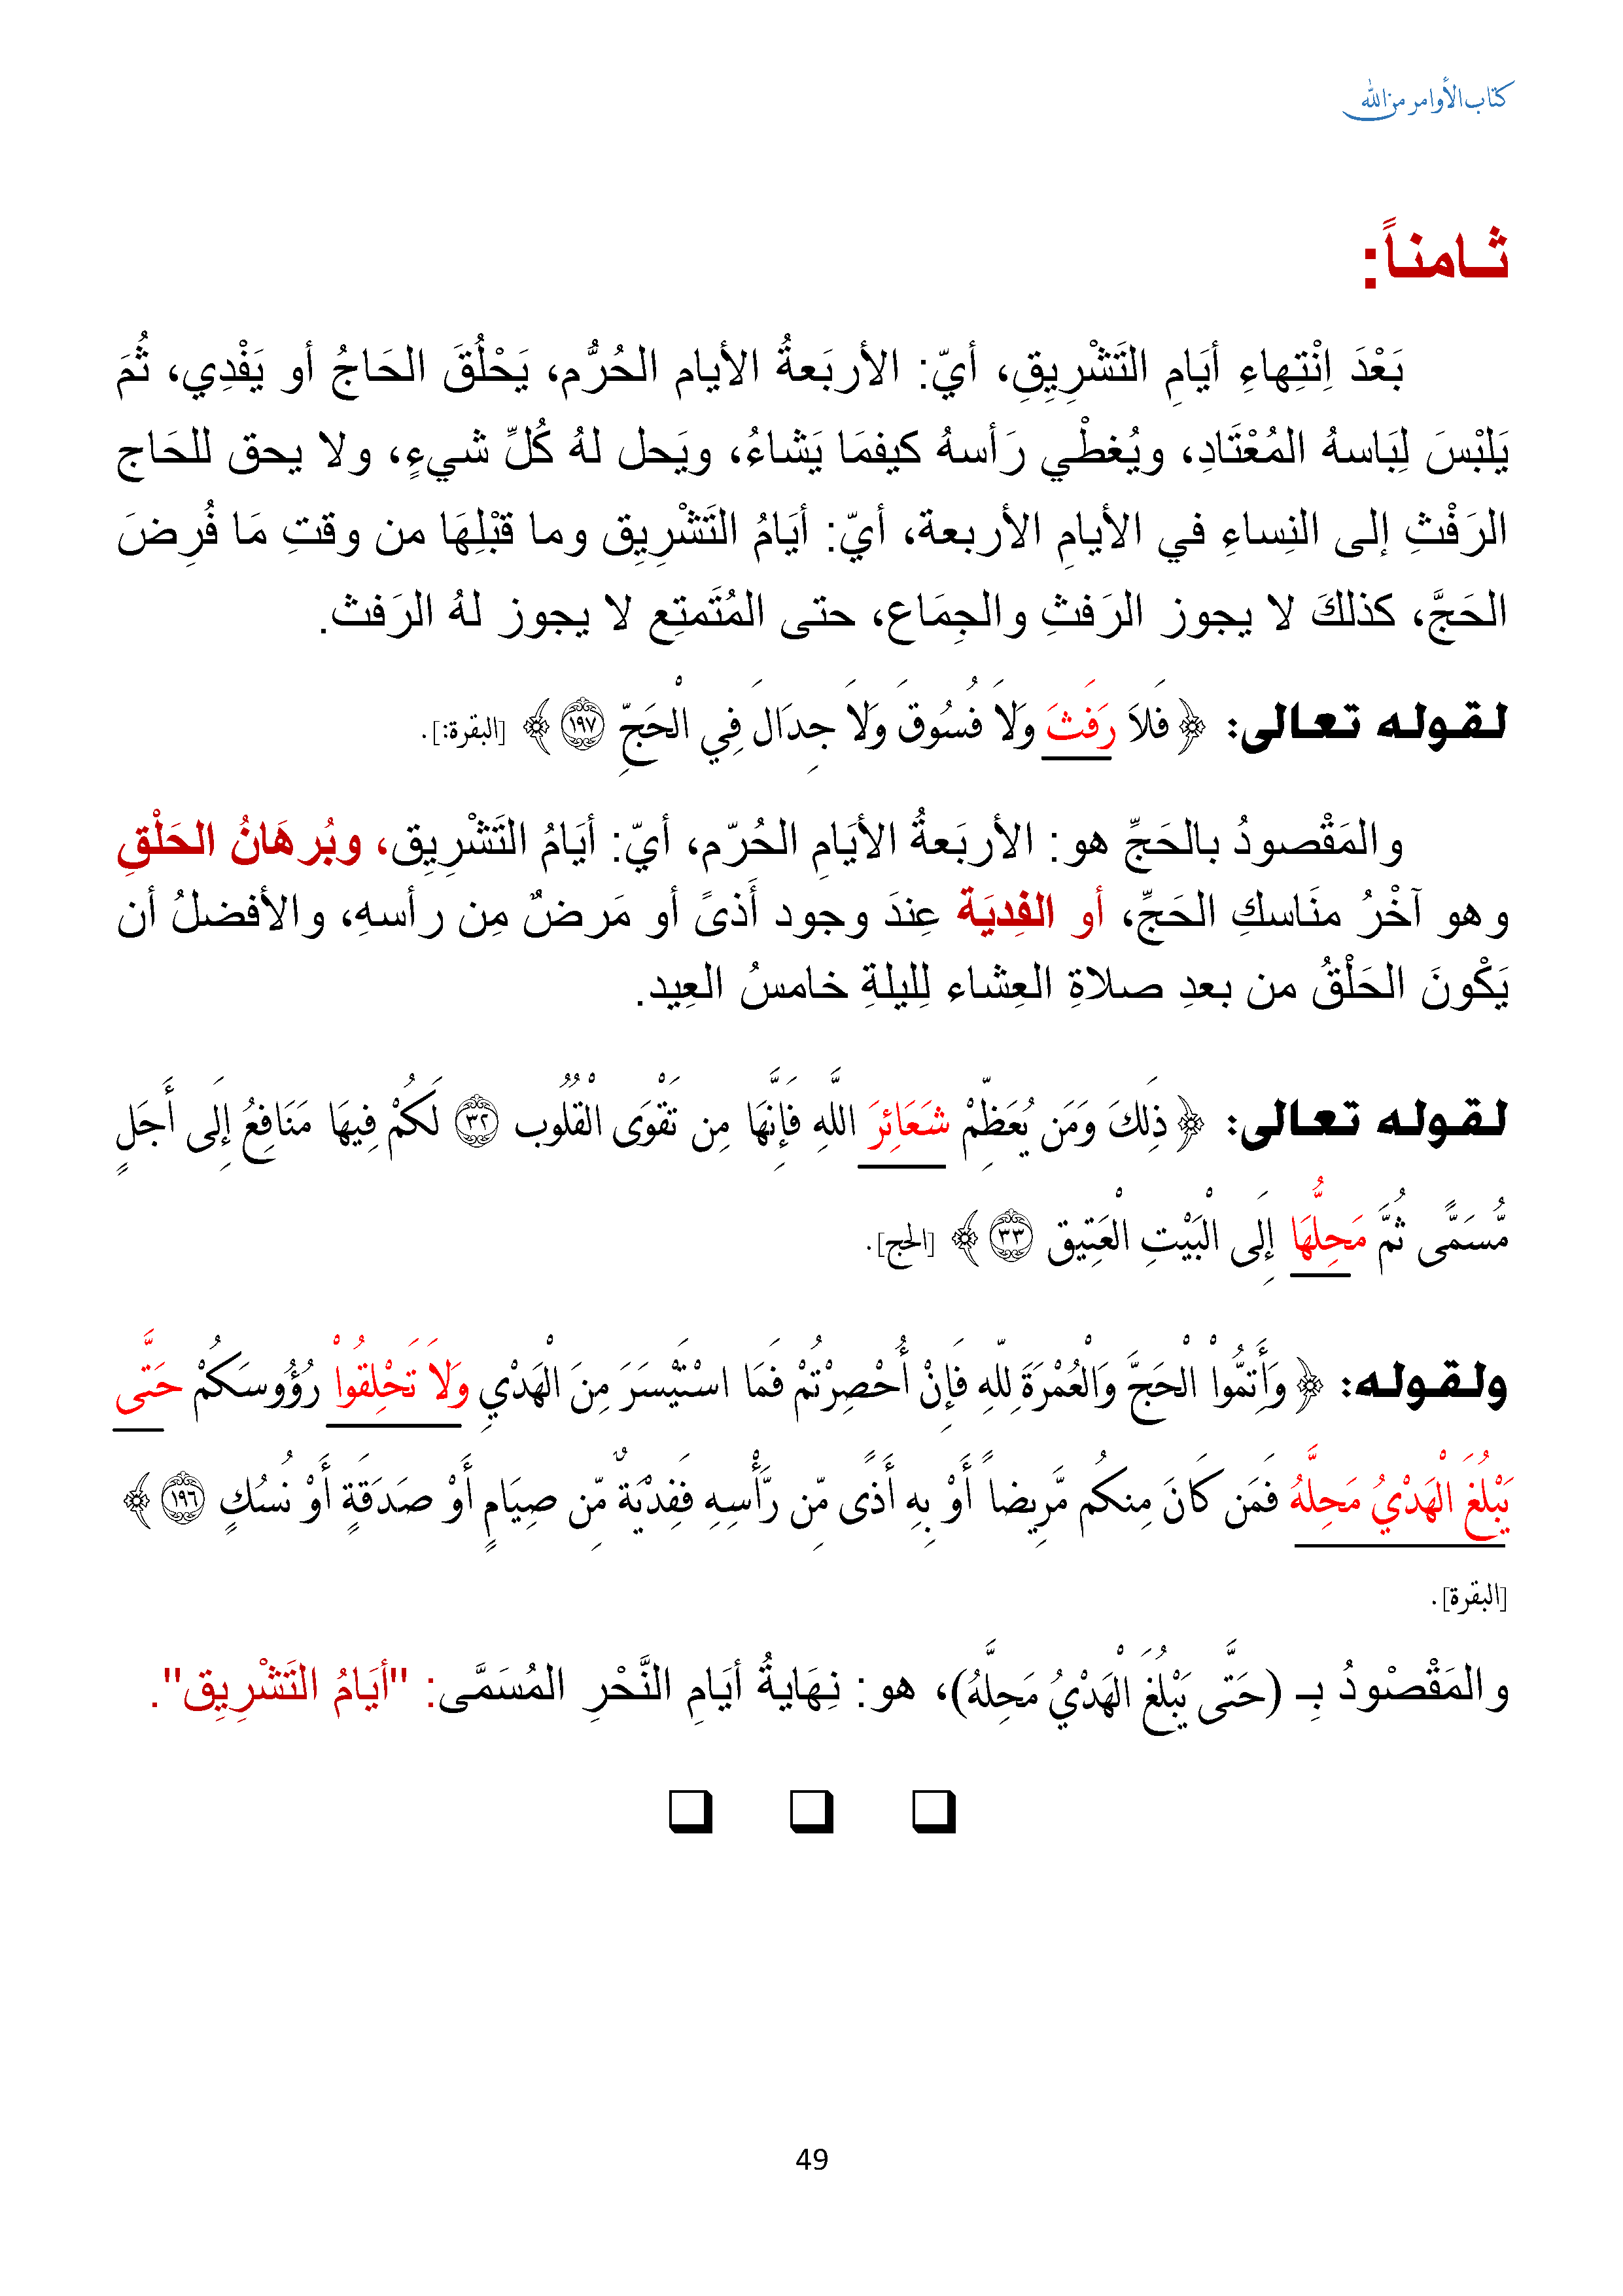 كتاب الأوامر من الله
ثـامنـاً:
بَعْدَ اِنْتِهاءِ أيَامِ التَشْرِيِقِ، أيّ: الأربَعةُ الأيام الحُرُّم، يَحْلُقَ الحَاجُ أو يَفْدِي، ثُمَ
يَلبْسَ لِبَاسهُ المُعْتَادِ، ويُغطْي رَأسهُ كيفمَا يَشاءُ، ويَحل لهُ كُلِّ شيءٍ، ولا يحق للحَاج
الرَفْثِ إلى النِساءِ في الأيامِ الأربعة، أيّ: أيَامُ التَشْرِيِق وما قبْلِهَا من وقتِ مَا فُرِضَ
الحَجَّ، كذلكَ لا يجوز الرَفثِ والجِمَاع، حتى المُتَمتِع لا يجوز لهُ الرَفث.
لـقـولـه تـعـالى: ﴿ فَلاَ رَفَثَ وَلاَ فُسُوقَ وَلاَ جِدَالَ فِي الْحَجِّ ١٩٧ ﴾ [البقرة:].
والمَقْصودُ بالحَجِّ هو: الأربَعةُ الأيَامِ الحُرّم، أيّ: أيَامُ التَشْرِيِق، وبُرهَانُ الحَلْقِ
وهو آخْرُ منَاسكِ الحَجِّ، أو الفِديَة عِندَ وجود أَذىً أو مَرضٌ مِن رأسهِ، والأفضلُ أن
يَكْونَ الحَلْقُ من بعدِ صلاةِ العِشاء لِليلةِ خامسُ العِيد.
لـقـولـه تـعـالى: ﴿ ذَلِكَ وَمَن يُعَظِّمْ شَعَائِرَ اللَّهِ فَإِنَّهَا مِن تَقْوَى الْقُلُوبِ ٣٢ لَكُمْ فِيهَا مَنَافِعُ إِلَى أَجَلٍ
مُّسَمًّى ثُمَّ مَحِلُّهَا إِلَى الْبَيْتِ الْعَتِيقِ ٣٣ ﴾ [الحج].
ولـقـولـه: ﴿ وَأَتِمُّواْ الْحَجَّ وَالْعُمْرَةَ لِلّهِ فَإِنْ أُحْصِرْتُمْ فَمَا اسْتَيْسَرَ مِنَ الْهَدْيِ وَلاَ تَحْلِقُواْ رُؤُوسَكُمْ حَتَّى
يَبْلُغَ الْهَدْيُ مَحِلَّهُ فَمَن كَانَ مِنكُم مَّرِيضاً أَوْ بِهِ أَذًى مِّن رَّأْسِهِ فَفِدْيَةٌ مِّن صِيَامٍ أَوْ صَدَقَةٍ أَوْ نُسُكٍ ١٩٦ ﴾
[البقرة].
والمَقْصْودُ بِـ (حَتَّى يَبْلُغَ الْهَدْيُ مَحِلَّهُ)، هو: نِهَايةُ أيَامِ النَّحْرِ المُسَمَّى: "أيَامُ التَشْرِيِق".
49